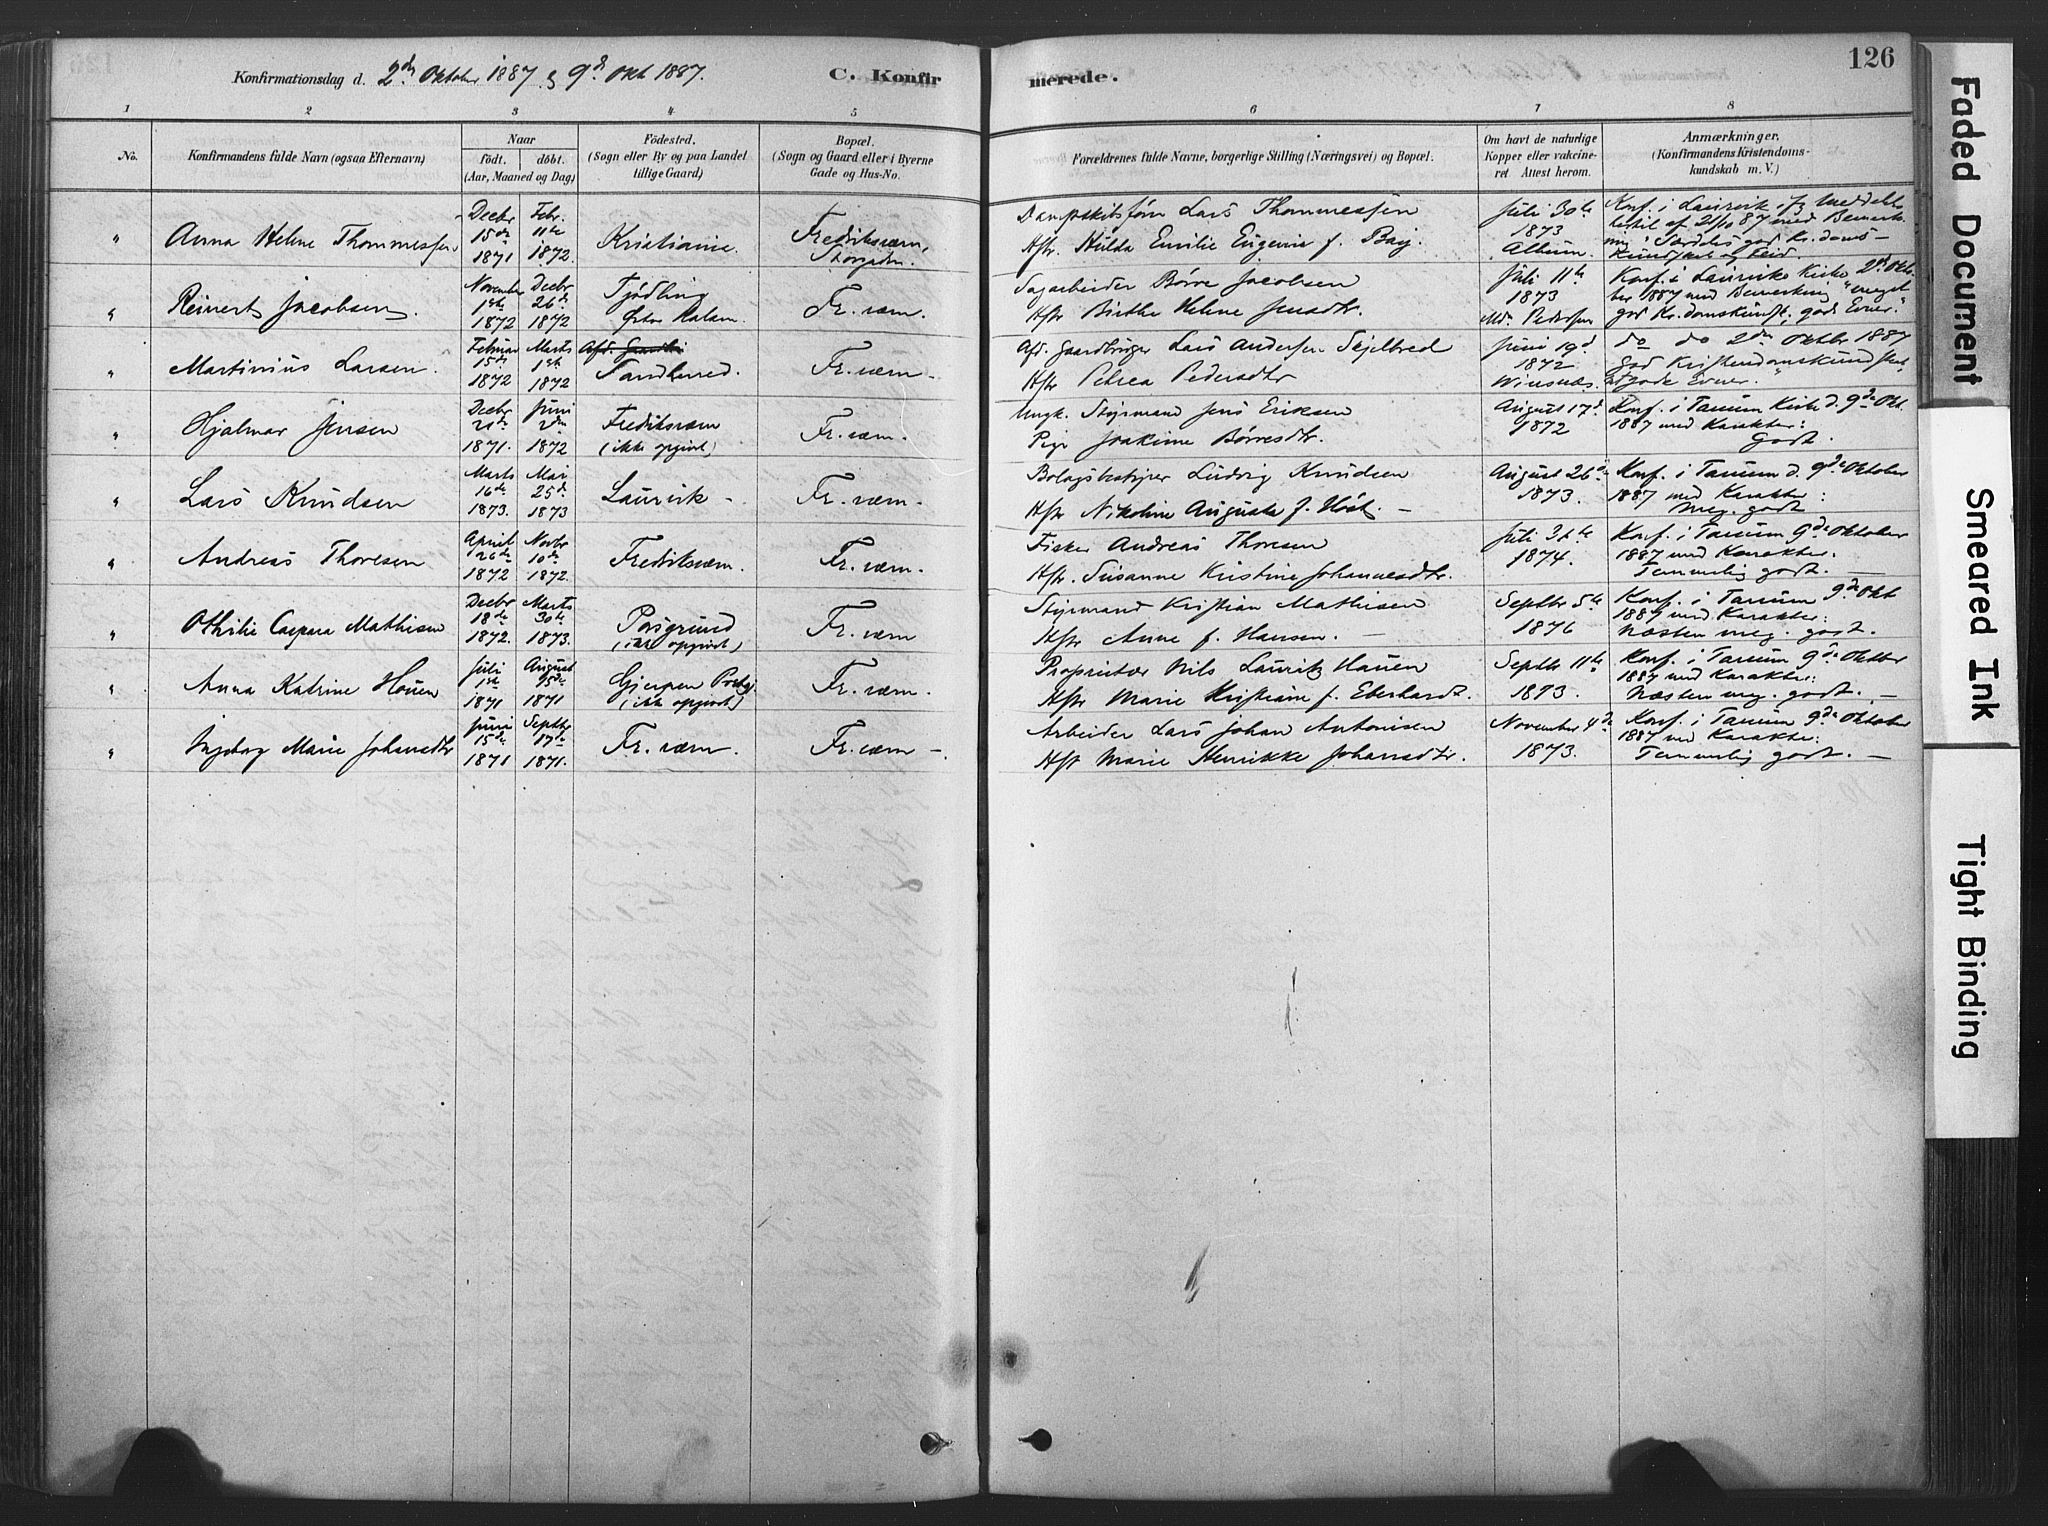 126
Konfirmationsdag d. 2den Oktober 1887 & 9de Okt 1887. C. Konfirmerede.
1 2 3 4 5 6 7 8
No.
Konfirmandens fulde Navn (ogsaa Efternavn)
Naar
födt. döbt.
(Aar, Maaned og Dag)
Födested.
(Sogn eller By og paa Landet
tillige Gaard)
Bopæl.
(Sogn og Gaard eller i Byerne
Gade og Hus-No.
Forældrenes fulde Navne, borgerlige Stilling (Næringsvei) og Bopæl.
Om havt de naturlige
Kopper eller vakcine-
ret Attest herom.
Anmærkninger.
(Konfirmandens Kristendoms-
kundskab m. V.)
"
Anna Helene Thommessen
Decbr
15de
1871
Febr.
11te
1872.
Kristiania.
Fredriksværn,
Dampskibsfører Lars Thommessen
Hstr. Hulda Emilie Eugenie f. Bay.
Juli 30te
1873
Konf. i Laurvik
21/10 87 med Bemærk
Særdeles god Kr.doms-
Kundskab og Flid.
"
Reinert Jacobsen.
November
1ste
1872
Decbr
26de
1872
Tjödling
Fr.værn.
Sagarbeider Börre Jacobsen
Hstr Birthe Helene Jensdtr.
Juli 11te
1873
Pedersen
Konf. i Laurviks Kirke 2d Okto-
ber 1887 med Bemerkning "meget
god Kr.domskundsk, gode Evner."
"
Martinius Larsen.
Februar
15de
1872
Marts
1ste
1872
Sandherred.
Fr.værn.
Afd. Gaardbruger Lars Andersen Skjelbred
Hstr Petrea Pedersdtr
Juni 19d
1872
Winsnæs.
do do 2den Oktbr 1887
God Kristendomskundskab,
gode Evner."
"
Hjalmar Jensen
Decbr
1871.
Juni
2den
1872
Fredriksværn
(ikke opgivet)
Fr.værn.
Ungk. Styrmand Jens Eriksen
Pige Joakime Börresdtr.
August 17d
1872
Konf. i Tanum Kirke d. 9de Okt.
1887 med Karakter:
Godt.
"
Lars Knudsen
Marts
16de
1873.
Mai
25d
1873
Laurvik -
Fr.værn.
Ludvig Knudsen
Hstr Nikoline Augusta f. Höst. -
August 26d
1873.
Konf. i Tanum d. 9de Oktober
1887 med Karakter:
Meg. godt
"
Andreas Thoresen
April
26de
1872
Novbr
10de
1872.
Fredriksværn.
Fr.værn.
Fisker Andreas Thoresen
Hstr. Susanne Kristine Johannesdtr.
Juli 31te
1874.
Konf. i Tanum 9de Oktober
1887 med Karakter:
Temmelig godt. -
"
Othilie Caspara Mathisen
Decbr
18de
1872.
Marts
30te
1873.
Porsgrund
(ikke opgivet)
Fr.værn
Styrmand Kristian Mathisen
Hstr Anne f. Hansen. -
Septbr 5te
1876
Konf. i Tanum 9de Okt
1887 med Karakter:
Næsten meg. godt.
"
Anna Katrine Houen
Juli
1ste
1871
August
1871
Gjerpen Prstgj.
(ikke opgivet)
Fr.værn.
Proprietær Nils Lauritz Houen
Hstr Marie Kristiane f. Eberhardt.
Septbr 11te
1873.
Konf. i Tanum 9de Oktber
1887 med Karakter:
Næsten meg. godt. -
"
Ingeborg Marie Johansdtr
Juni
15de
1871
Septbr
17de
1871.
Fr.værn.
Fr.værn -
Arbeider Lars Johan Antonisen
Hstr Marie Henrikke Johansdtr.
November 4de
1873.
Konf. i Tanum 9de Oktober
1887 med Karakter:
Temmelig godt. -
Faded Document
Smeared Ink
Tight Binding